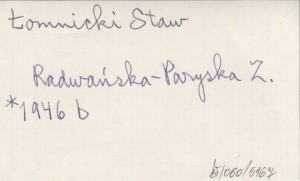 Łomnicki Staw
Radwańska-Paryska Z.
*1946 b
b/060/5167